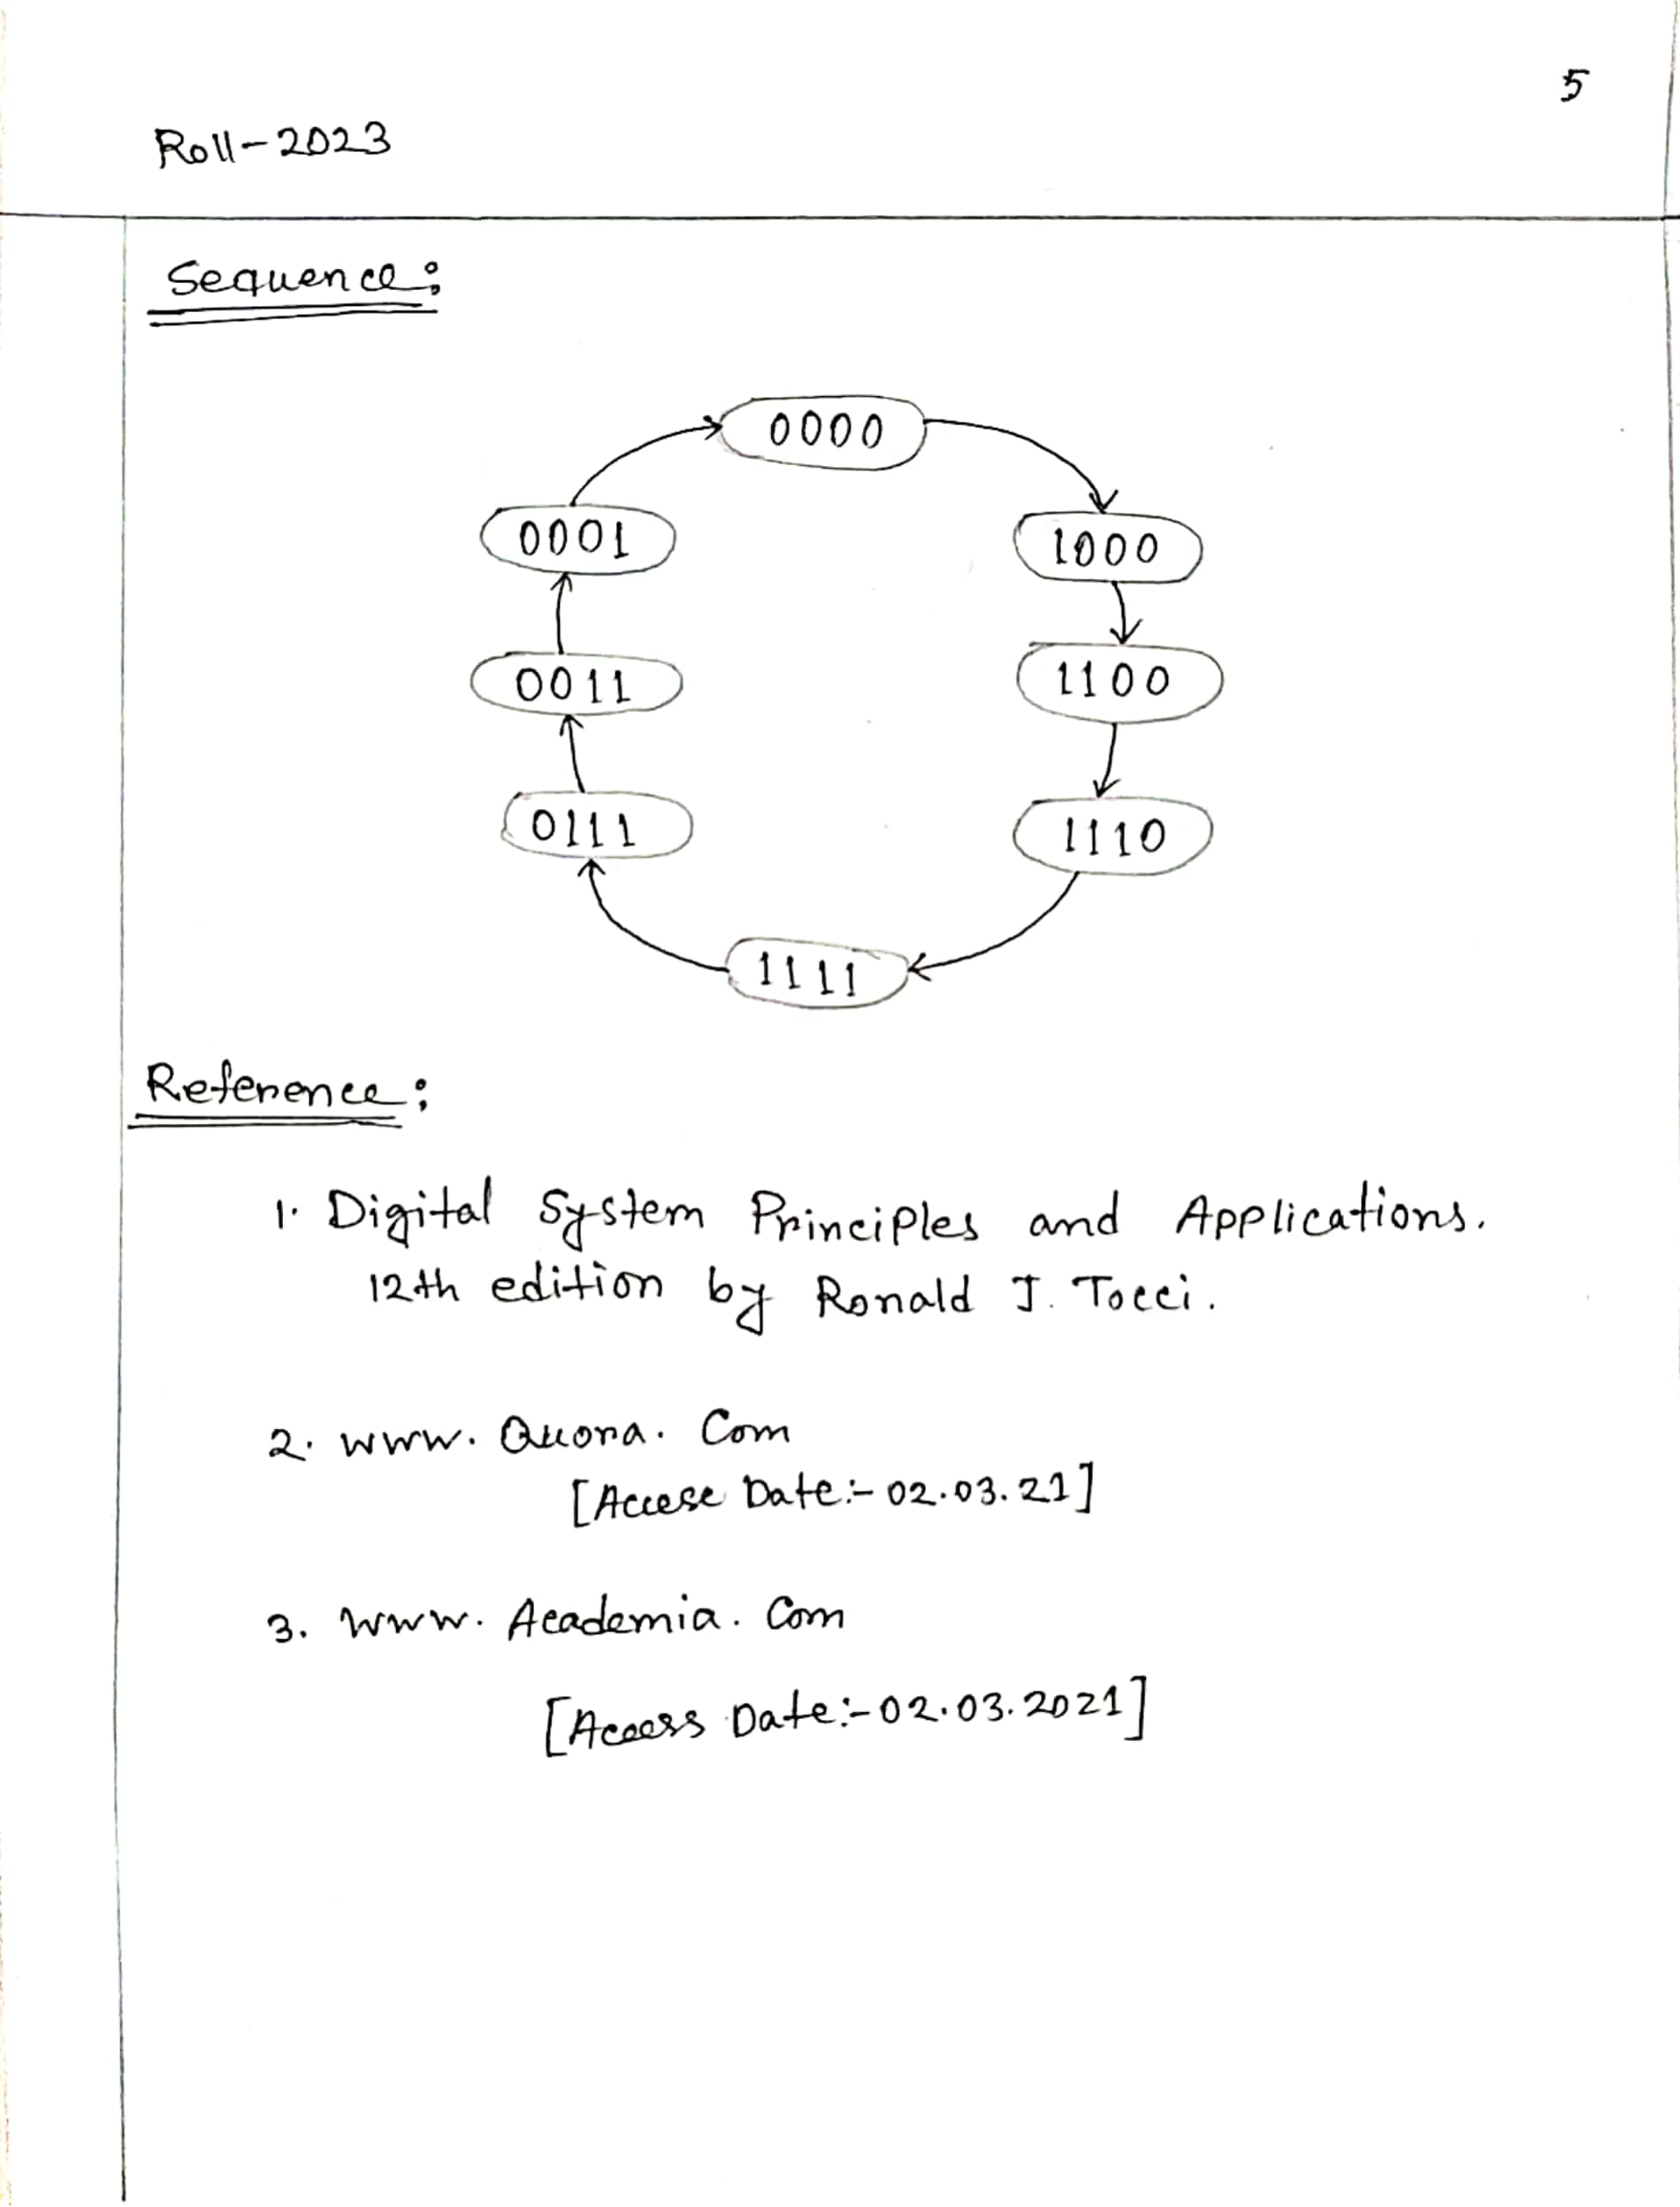 5
Roll-2023
Sequence:
0000
0001
1000
0011
1100
0111
1110
1111
Reference:
1. Digital System Principles and Applications.
12th edition by Ronald J. Tocci.
2. www. Quora. Com
[Accese Date:- 02.03.21]
3. www. Academia. Com
[Access Date:- 02.03.2021]